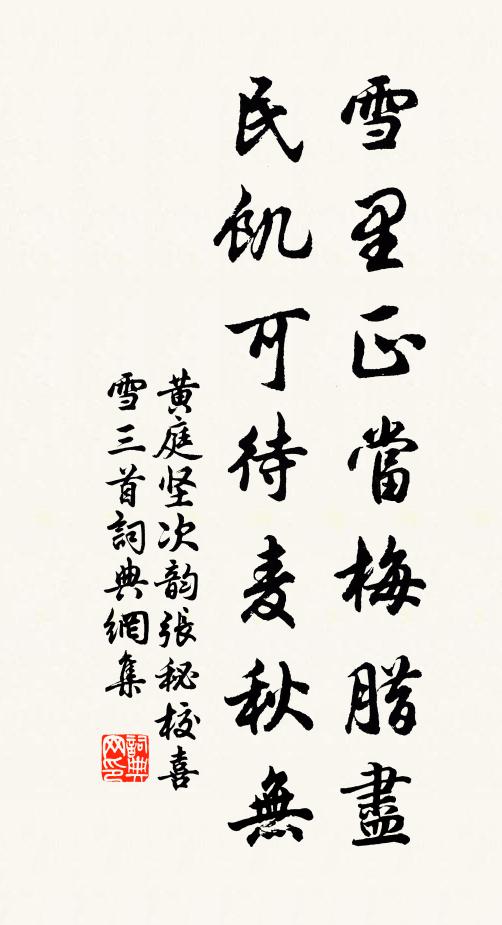 雪里正當梅腊盡
民飢可待麦秋無
黄庭坚次韵張秘校喜
雪三首詞典網集
詞典网印